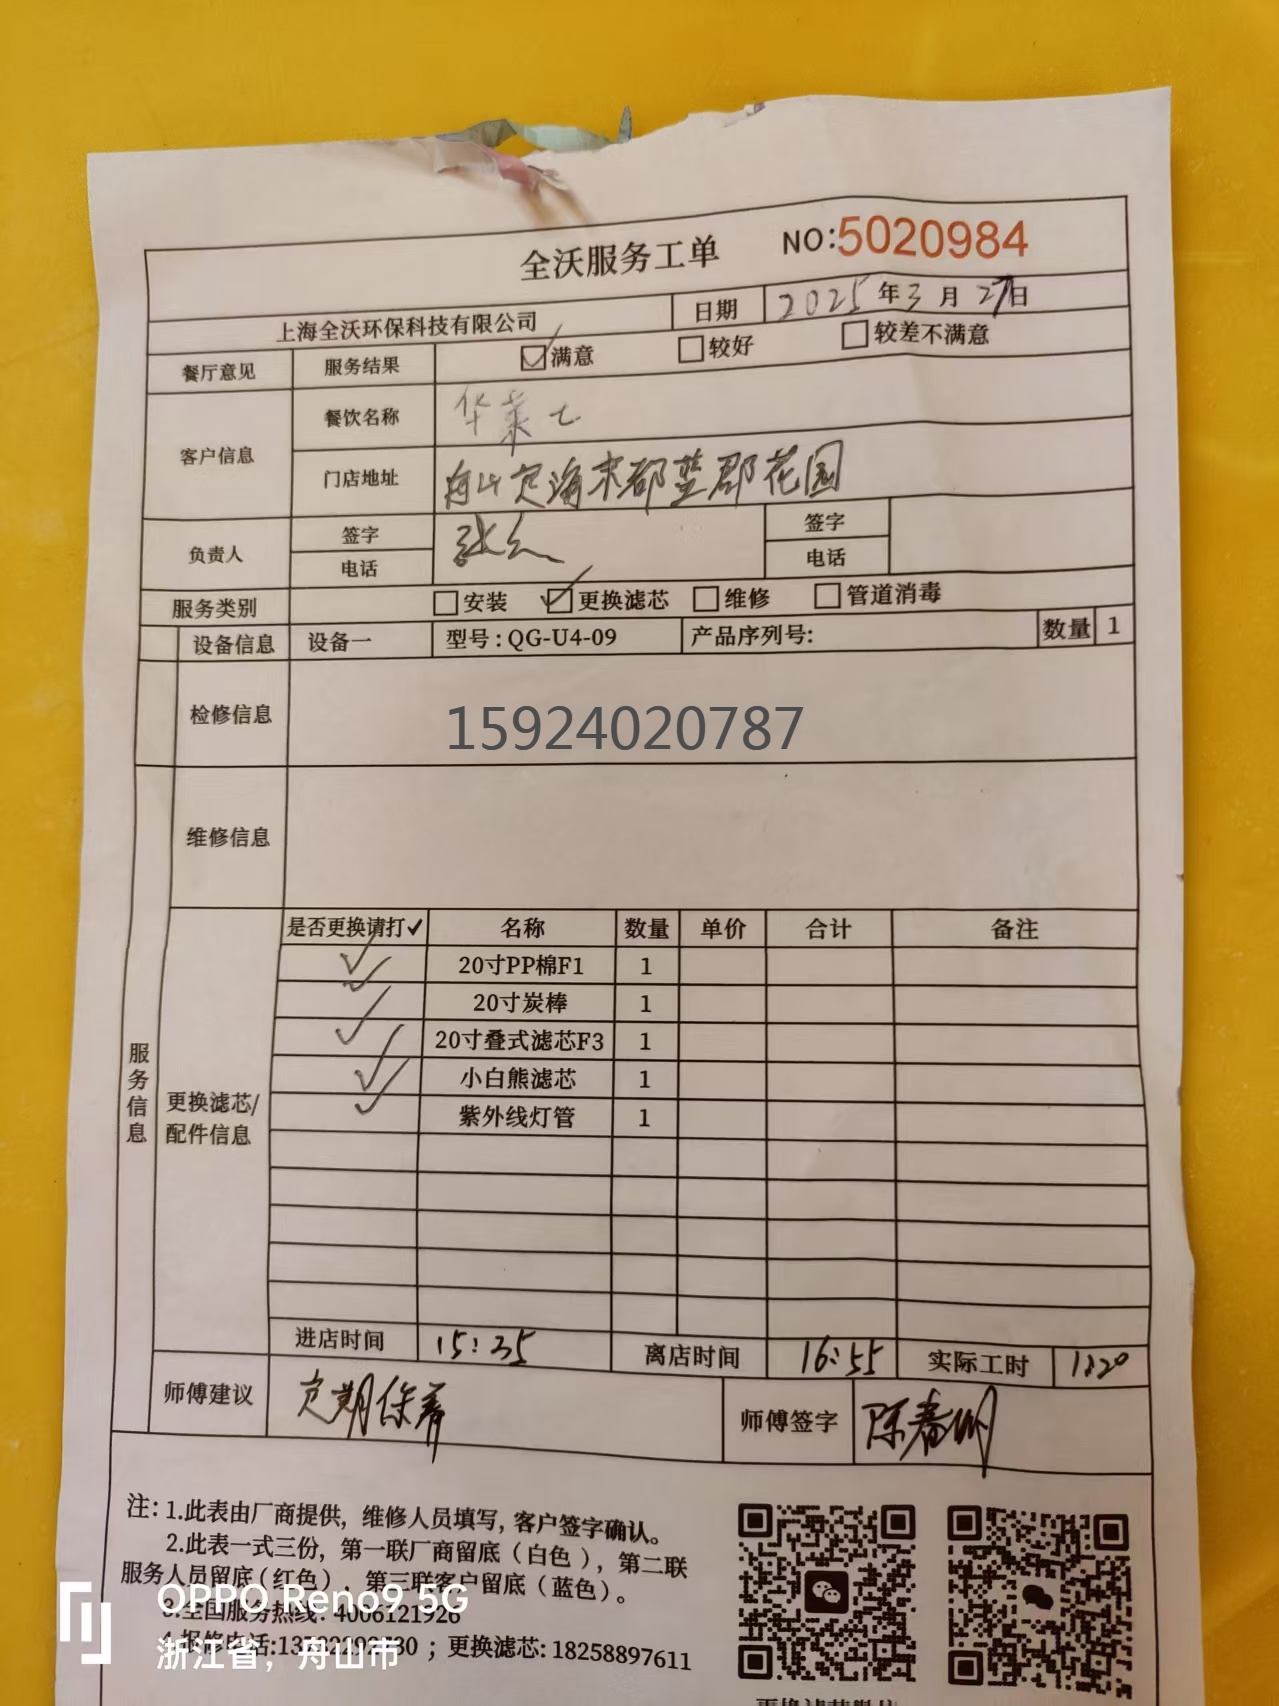 全沃服务工单 NO:5020984
上海全沃环保科技有限公司 日期 2025年3月27日
餐厅意见 服务结果 满意 较好 较差不满意
客户信息 餐饮名称 华莱士
门店地址 舟山定海东都蓝郡花园
负责人 签字 签字
电话 电话
服务类别 安装 更换滤芯 维修 管道消毒
设备信息 设备一 型号:QG-U4-09 产品序列号: 数量 1
检修信息 15924020787
维修信息
服务信息
更换滤芯/配件信息
是否更换请打✓ 名称 数量 单价 合计 备注
✓ 20寸PP棉F1 1
✓ 20寸炭棒 1
✓ 20寸叠式滤芯F3 1
✓ 小白熊滤芯 1
✓ 紫外线灯管 1
进店时间 15:35 离店时间 16:55 实际工时 1:20
师傅建议 定期保养 师傅签字 陈春州
注: 1.此表由厂商提供, 维修人员填写, 客户签字确认。
2.此表一式三份, 第一联厂商留底(白色), 第二联
服务人员留底(红色), 第三联客户留底(蓝色)。
3.全国服务热线: 4006121926
4.报修电话: ; 更换滤芯: 18258897611
OPPO Reno9 5G
浙江省, 舟山市